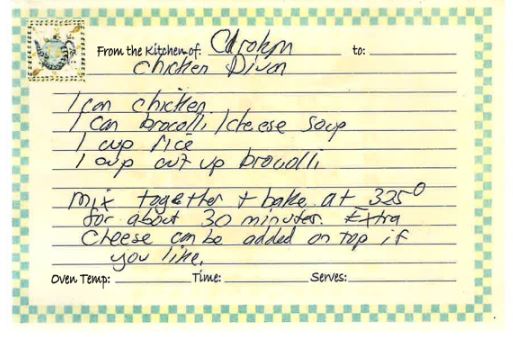 From the Kitchen of: Carolyn to:
Chicken Divan
1 can chicken
1 can brocolli/cheese soup
1 cup rice
1 cup cut up brocolli
mix together + bake at 325°
for about 30 minutes. Extra
cheese can be added on top if
you like.
Oven Temp: Time: Serves: